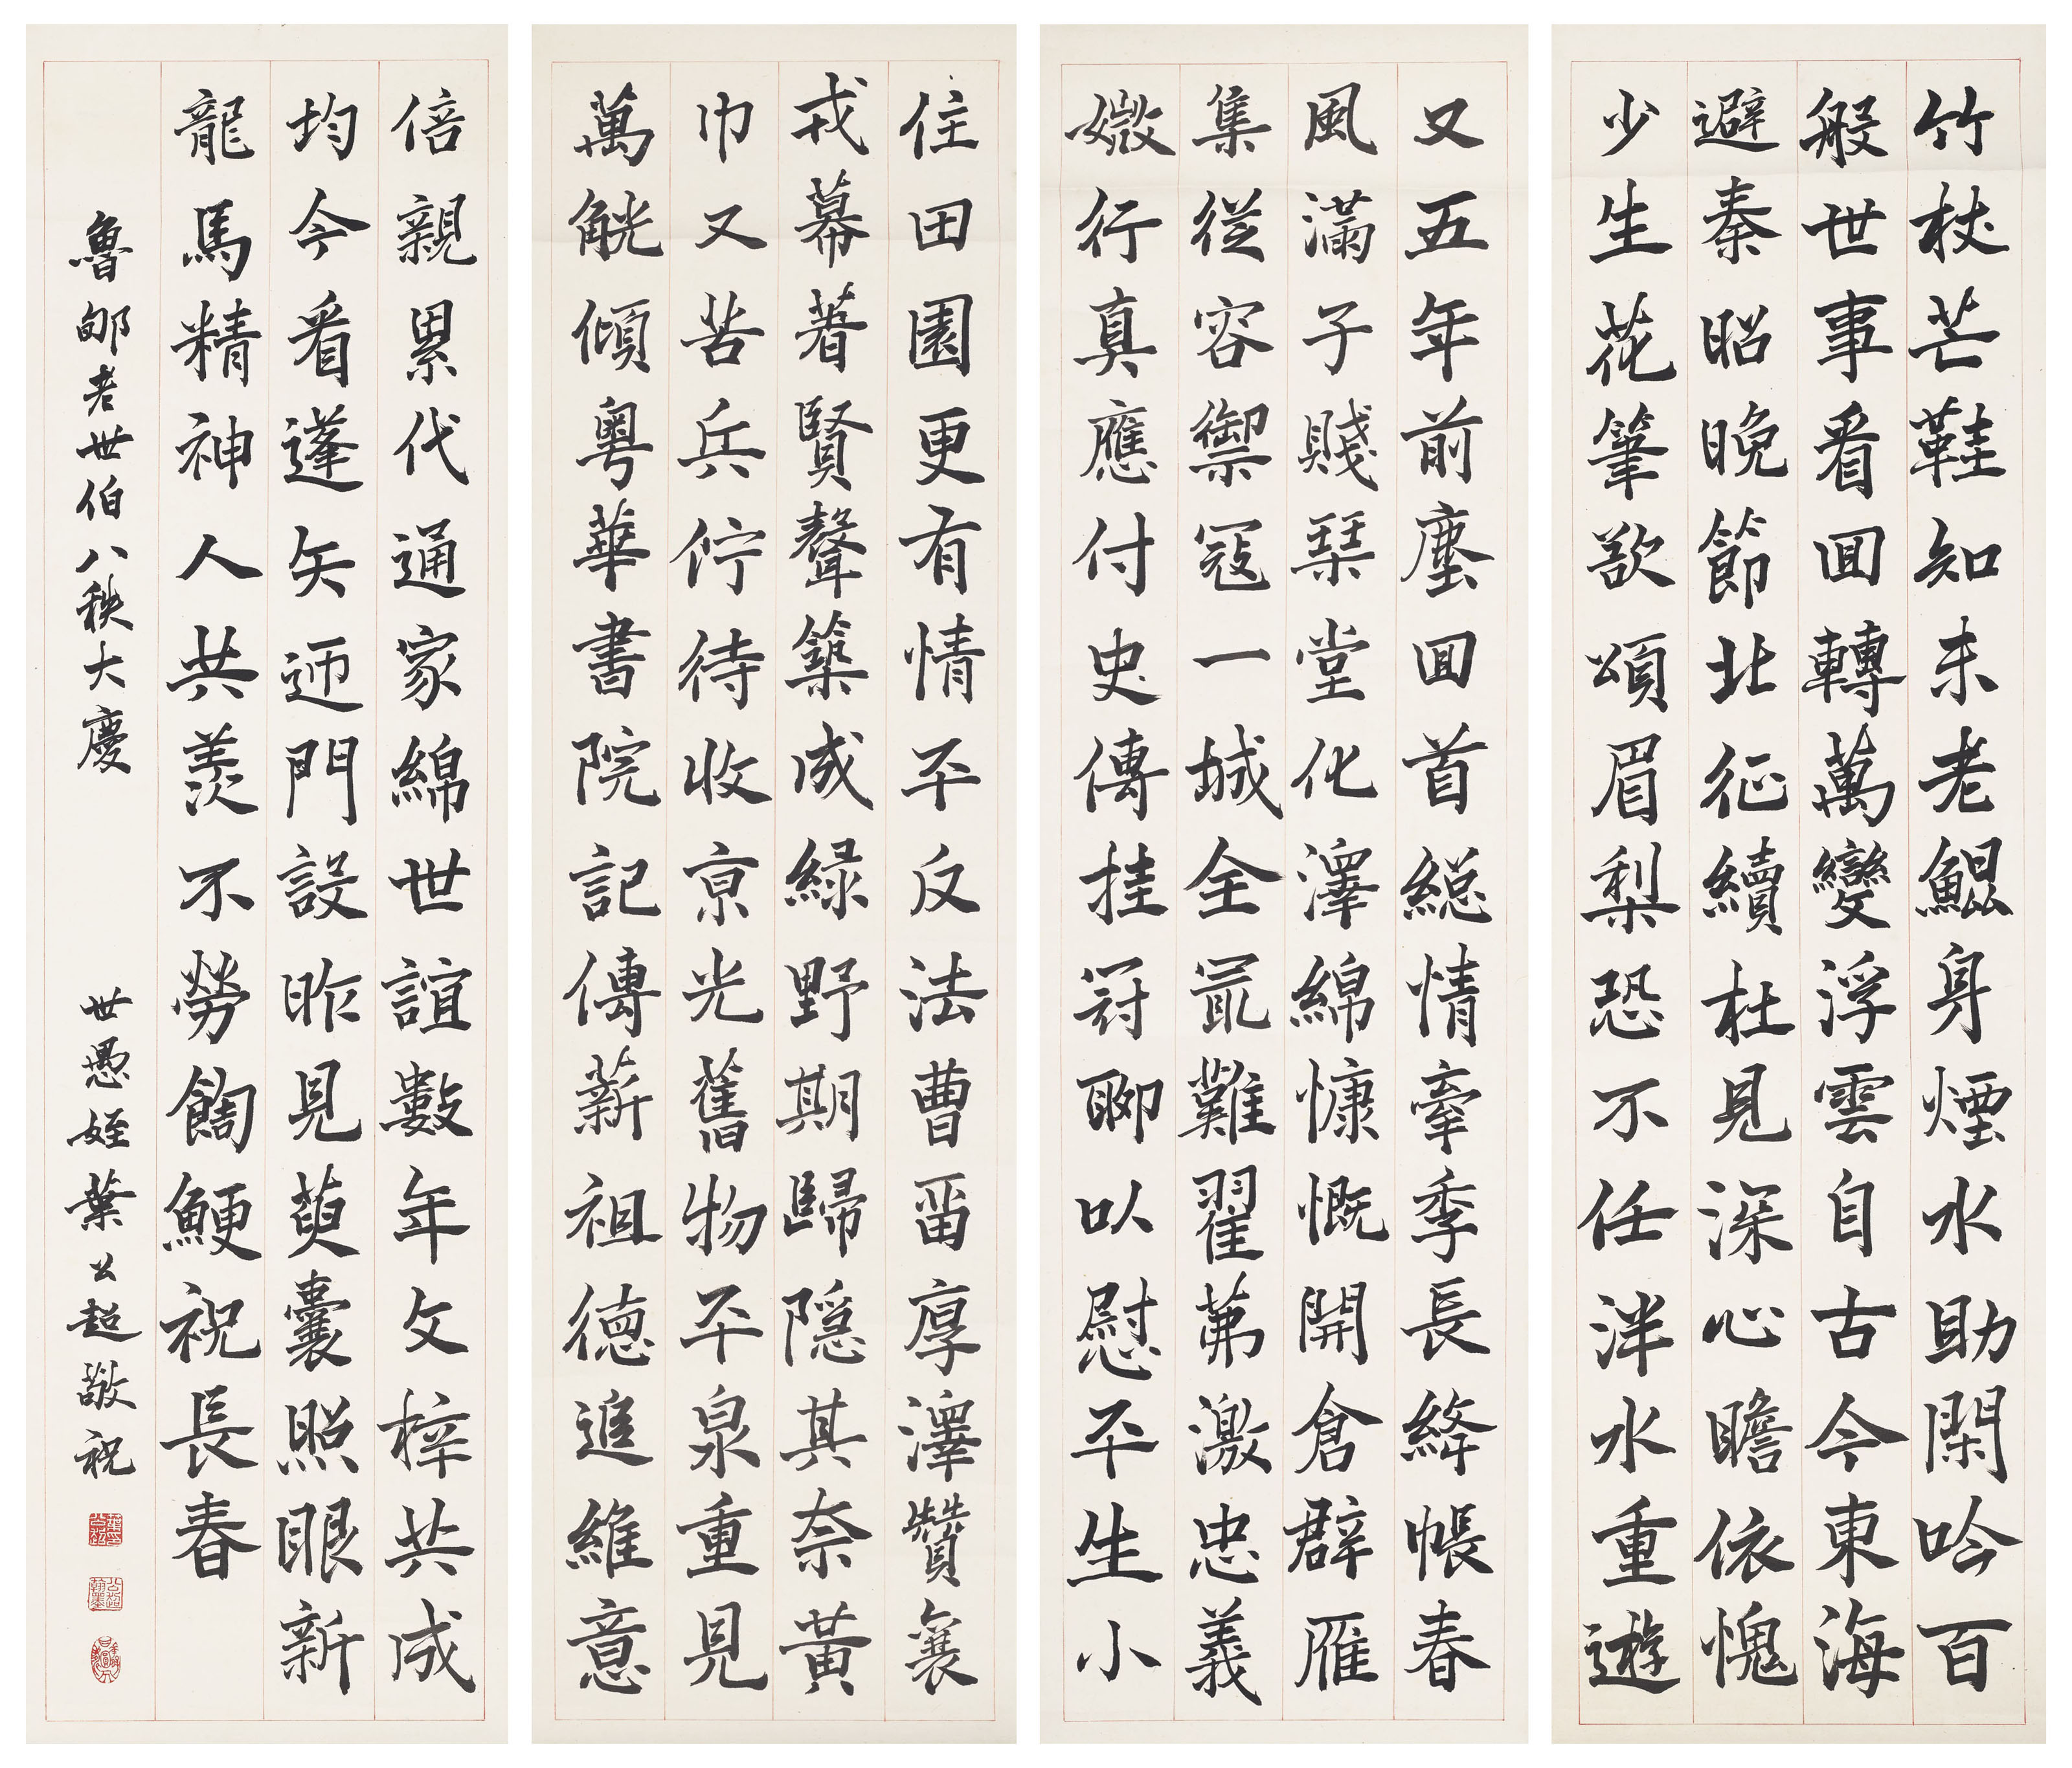 竹杖芒鞋知未老鯤身煙水助閑吟百
般世事看回轉萬變浮雲自古今東海
避秦昭晚節北征續杜見深心瞻依愧
少生花筆欲頌眉梨恐不任泮水重遊
又五年前塵回首總情牽季長絳帳春
風滿子賤琹堂化澤綿慷慨開倉群雁
集從容禦寇一城全最難翟茀激忠義
媺行真應付史傳挂冠聊以慰平生小
住田園更有情平反法曹留厚澤贊襄
戎幕著賢聲築成綠野期歸隱其奈黃
巾又苦兵佇待收京光舊物平泉重見
萬觥傾粵華書院記傳薪祖德追維意
倍親累代通家綿世誼數年文梓共成
均今看蓬矢迊門設昨見萸囊照眼新
龍馬精神人共羨不勞餔鯁祝長春
魯郇老世伯八秩大慶
世愚姪葉公超敬祝